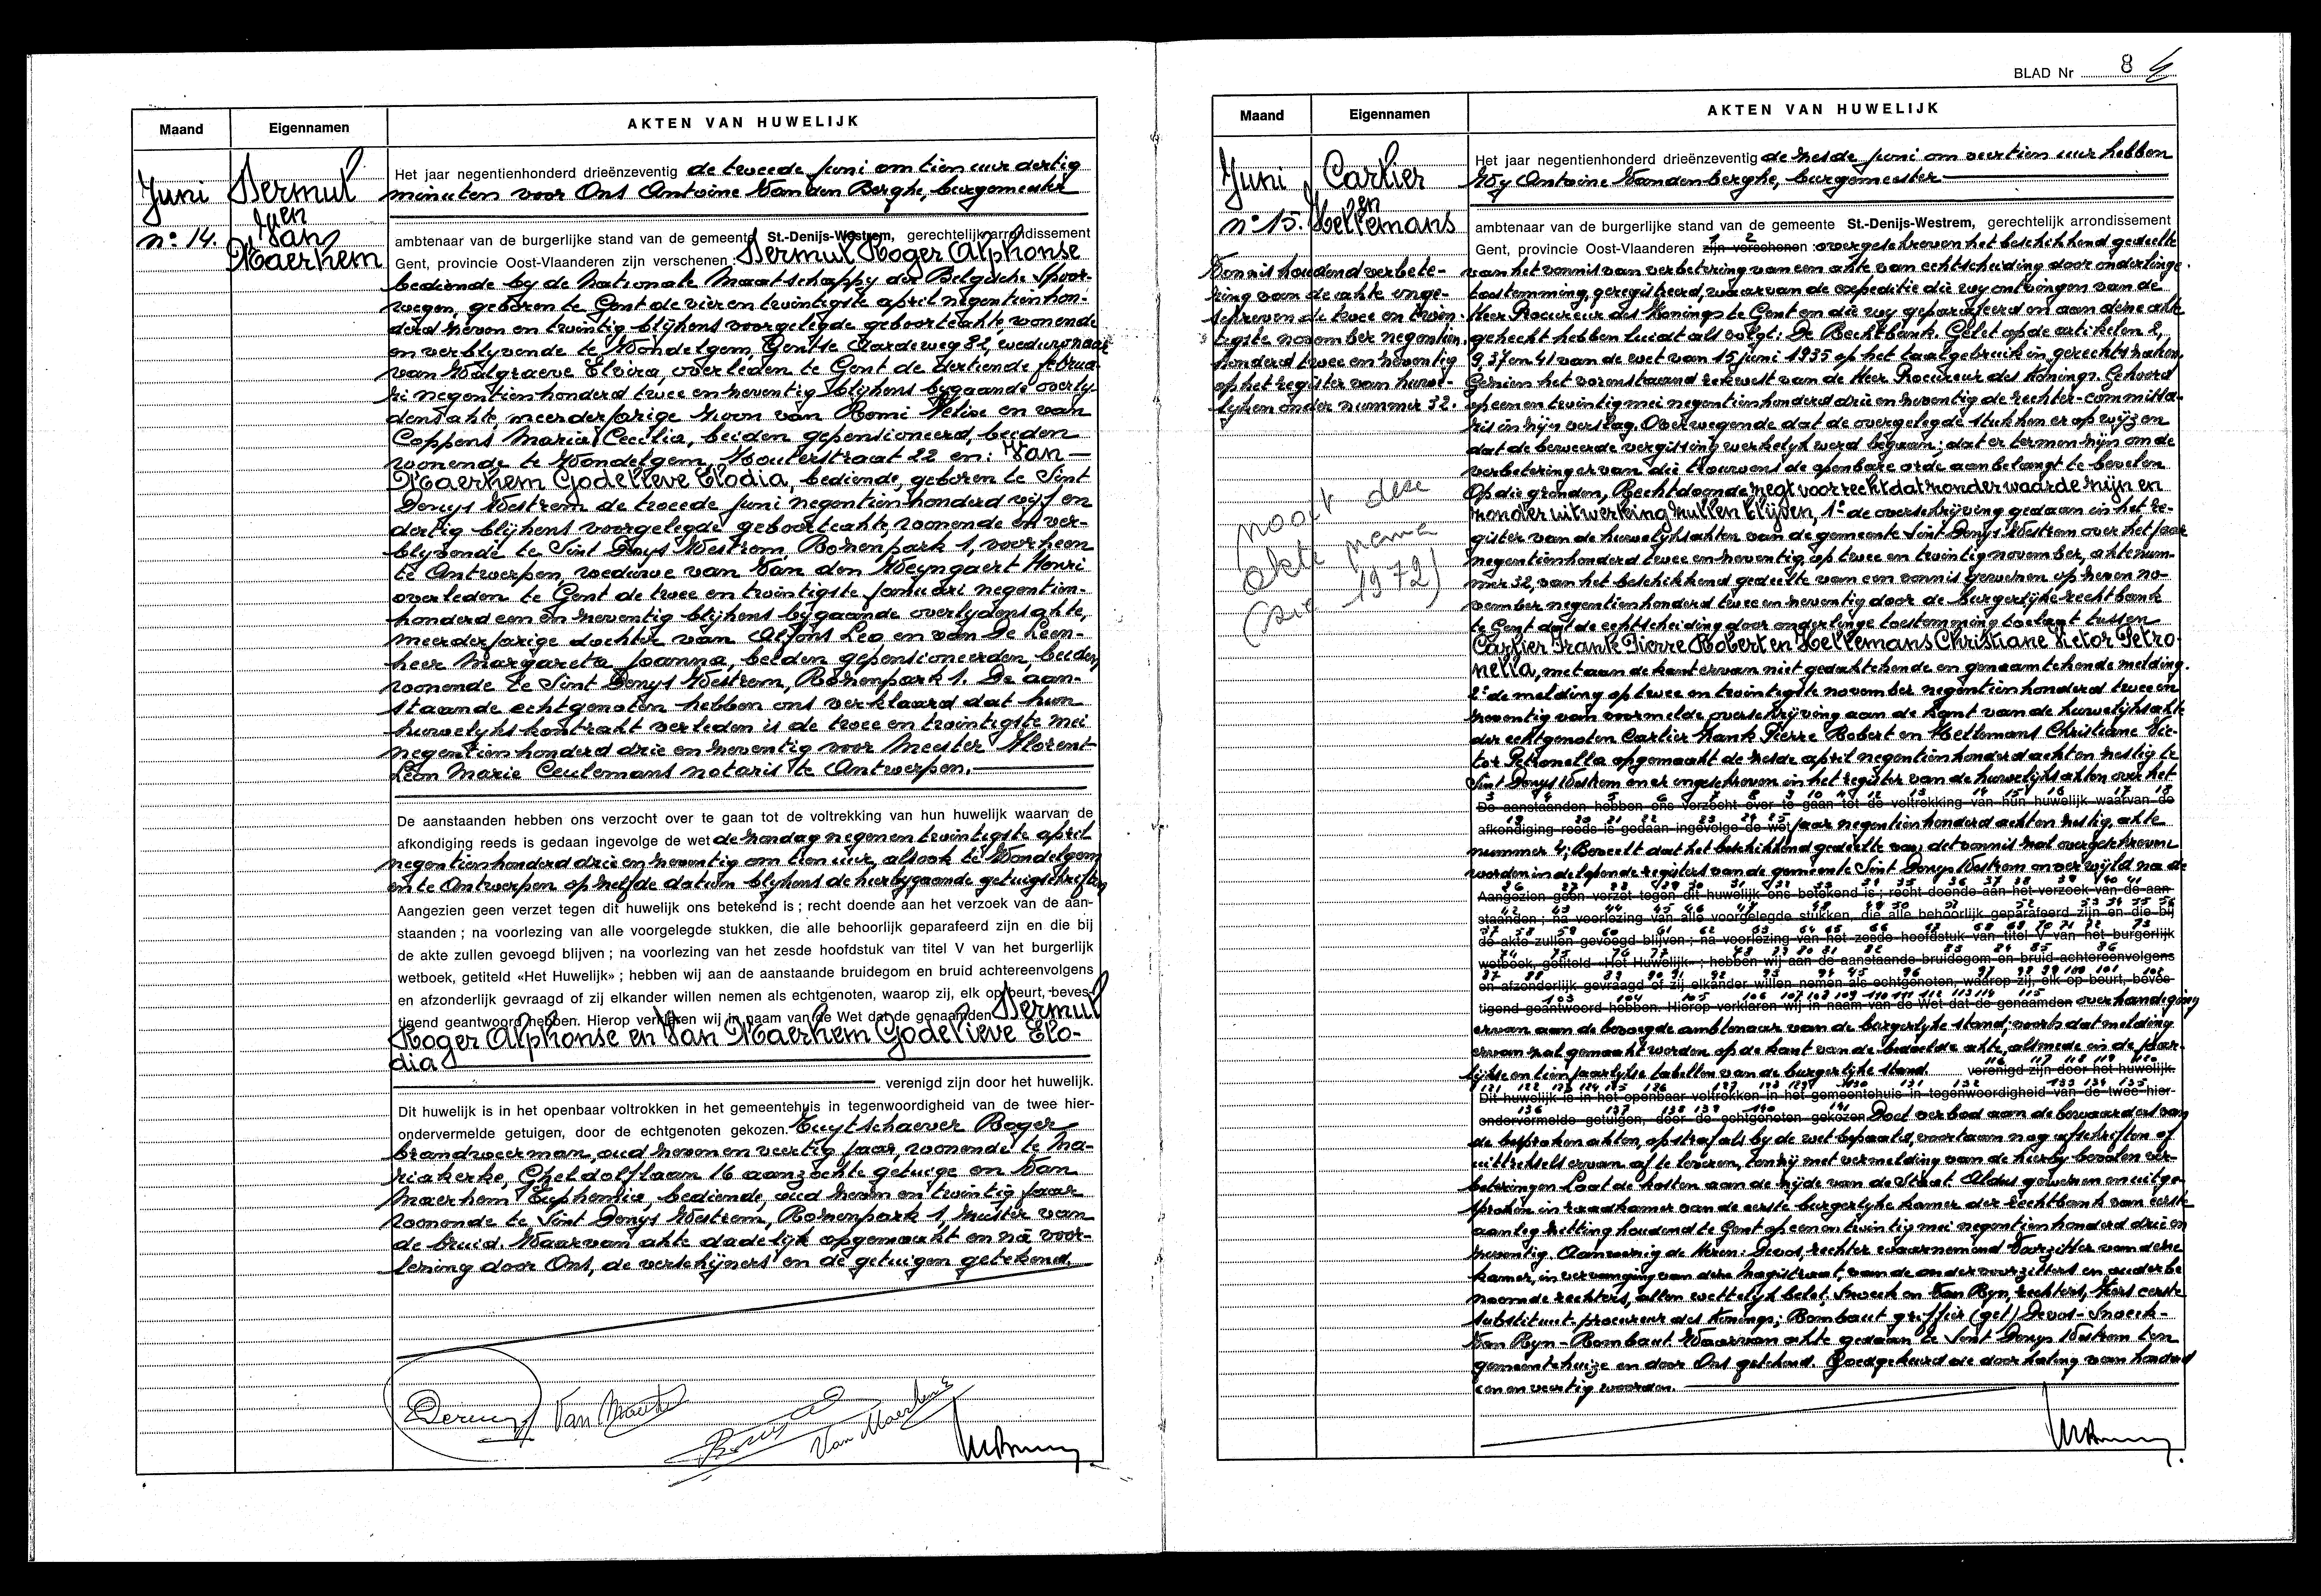 Maand
Eigennamen
AKTEN VAN HUWELIJK
Juni
nº 14.
Dermul
en
Van
Maerhem
Het jaar negentienhonderd drieënzeventig de tweede juni om tien uur dertig
minuten voor Ons Antoine Van den Berghe, burgemeester
ambtenaar van de burgerlijke stand van de gemeente St.-Denijs-Westrem, gerechtelijk arrondissement
Gent, provincie Oost-Vlaanderen zijn verschenen : Dermul Roger Alphonse
bediende by de Nationale Maatschappy der Belgische Spoor-
wegen, geboren te Gent de vier en twintigste april negentienhon-
derd zeven en twintig blykens voorgelegde geboorteakte, wonende
en verblyvende te Wondelgem, Gentse Aardeweg 82, weduwnaar
van Walgraeve Elvira, overleden te Gent de dertiende februa-
ri negentienhonderd twee en zeventig blykens bygaande overly-
densakte, meerderjarige zoon van Remi Velixe en van
Coppens Maria Cecilia, beiden gepensioneerd, beiden
wonende te Wondelgem, Houterstraat 22 en: Van
Maerhem Godelieve Elodia, bediende, geboren te Sint
Denys Westrem de tweede juni negentienhonderd vyf en
dertig blykens voorgelegde geboorteakte, wonende en ver-
blyvende te Sint Denys Westrem, Rozenpark 1, voorheen
te Antwerpen, weduwe van Van den Weyngaert Henri
overleden te Gent de twee en twintigste januari negentien-
honderd een en zeventig blykens bygaande overlydensakte,
meerderjarige dochter van Alfons Leo en van De Leen-
heer Margareta Joanna, beiden gepensioneerden, beiden
wonende te Sint Denys Westrem, Rozenpark 1. De aan-
staande echtgenoten hebben ons verklaard dat hun
huwelykskontrakt verleden is de twee en twintigste mei
negentienhonderd drie en zeventig voor Meester Florent
Léon Marie Ceulemans notaris te Antwerpen.
De aanstaanden hebben ons verzocht over te gaan tot de voltrekking van hun huwelijk waarvan de
afkondiging reeds is gedaan ingevolge de wet de zondag negen en twintigste april
negentienhonderd drie en zeventig om tien uur, alsook te Wondelgem
en te Antwerpen op zelfde datum blykens de hierbygaande getuigschriften
Aangezien geen verzet tegen dit huwelijk ons betekend is ; recht doende aan het verzoek van de aan-
staanden ; na voorlezing van alle voorgelegde stukken, die alle behoorlijk geparafeerd zijn en die bij
de akte zullen gevoegd blijven ; na voorlezing van het zesde hoofdstuk van titel V van het burgerlijk
wetboek, getiteld «Het Huwelijk» ; hebben wij aan de aanstaande bruidegom en bruid achtereenvolgens
en afzonderlijk gevraagd of zij elkander willen nemen als echtgenoten, waarop zij, elk op beurt, beves-
tigend geantwoord hebben. Hierop verklaren wij in naam van de Wet dat de genaamden Dermul
Roger Alphonse en Van Maerhem Godelieve Elo-
dia
verenigd zijn door het huwelijk.
Dit huwelijk is in het openbaar voltrokken in het gemeentehuis in tegenwoordigheid van de twee hier-
ondervermelde getuigen, door de echtgenoten gekozen. Tuytschaever Roger
brandweerman, oud zeven en veertig jaar, wonende te Ma-
riakerke, Gheldolflaan 16 aanzochte getuige en Van
Maerhem Euphemia, bediende, oud zeven en twintig jaar
wonende te Sint Denys Westrem, Rozenpark 1, zuster van
de bruid. Waarvan akte dadelyk opgemaakt en na voor-
lezing door Ons, de verschyners en de getuigen getekend.
BLAD Nr 8
Maand
Eigennamen
AKTEN VAN HUWELIJK
Juni
nº 15.
Cartier
en
Hellemans
Vonnis houdend verbete-
ring van de akte inge-
schreven de twee en twin-
tigste november negentien-
honderd twee en zeventig
op het register van huwe-
lyken onder nummer 32.
nooit deze
akte
(zie 1972)
Het jaar negentienhonderd drieënzeventig de zesde juni om veertien uur hebben
Wy Antoine Vandenberghe, burgemeester
ambtenaar van de burgerlijke stand van de gemeente St.-Denijs-Westrem, gerechtelijk arrondissement
Gent, provincie Oost-Vlaanderen zijn verschenen : overgeschreven het beschikkend gedeelte
van het vonnis van verbetering van een akte van echtscheiding door onderlinge
toestemming, geregistreerd, waarvan de expeditie die wy ontvingen van de
Heer Procureur des Konings te Gent en die wy geparafeerd en aan deze akte
gehecht hebben luidt als volgt: De Rechtbank. Gelet op de artikelen 2,
9, 37 en 41 van de wet van 15 juni 1935 op het taalgebruik in gerechtszaken.
Gezien het vorenstaand rekwest van de Heer Procureur des Konings. Gehoord
op een en twintig mei negentienhonderd drie en zeventig de rechter-commissa-
ris in zijn verslag. Overwegende dat de overgelegde stukken er op wyzen
dat de beweerde vergissing werkelyk werd begaan; dat er termen zijn om de
verbetering ervan die trouwens de openbare orde aanbelangt te bevelen
Op die gronden, Rechtdoende zegt voor recht dat zonder waarde zijn en
zonder uitwerking zullen blijven, 1º de overschrijving gedaan in het re-
gister van de huwelyksakten van de gemeente Sint Denys Westrem over het jaar
negentienhonderd twee en zeventig, op twee en twintig november, akte num-
mer 32, van het beschikkend gedeelte van een vonnis gewezen op zeven no-
vember negentienhonderd twee en zeventig door de burgerlyke rechtbank
te Gent dat de echtscheiding door onderlinge toestemming toelaat tussen
Cartier Frank Pierre Robert en Hellemans Christiane Victor Petro-
nella, met aan de kant ervan niet gedagtekende en genaamtekende melding.
2º de melding op twee en twintigste november negentienhonderd twee en
zeventig van voormelde overschrijving aan de kant van de huwelyksakte
der echtgenoten Cartier Frank Pierre Robert en Hellemans Christiane Vic-
tor Petronella opgemaakt de zesde april negentienhonderd acht en zestig te
Sint Denys Westrem en er ingeschreven in het register van de huwelyksakten over het
De aanstaanden hebben ons verzocht over te gaan tot de voltrekking van hun huwelijk waarvan de
afkondiging reeds is gedaan ingevolge de wet jaar negentienhonderd acht en zestig, akte
nummer 4; Beveelt dat het beschikkend gedeelte van dit vonnis zal overgeschreven
worden in de lopende registers van de gemeente Sint Denys Westrem onverwijld na de
Aangezien geen verzet tegen dit huwelijk ons betekend is ; recht doende aan het verzoek van de aan-
staanden ; na voorlezing van alle voorgelegde stukken, die alle behoorlijk geparafeerd zijn en die bij
de akte zullen gevoegd blijven ; na voorlezing van het zesde hoofdstuk van titel V van het burgerlijk
wetboek, getiteld «Het Huwelijk» ; hebben wij aan de aanstaande bruidegom en bruid achtereenvolgens
en afzonderlijk gevraagd of zij elkander willen nemen als echtgenoten, waarop zij, elk op beurt, beves-
tigend geantwoord hebben. Hierop verklaren wij in naam van de Wet dat de genaamden overhandiging
ervan aan de bevoegde ambtenaar van de burgerlyke stand; voorts dat melding
ervan zal gemaakt worden op de kant van de bedoelde akte, alsmede in de jaar-
lijkse en tienjaarlykse tabellen van de burgerlyke stand. verenigd zijn door het huwelijk.
Dit huwelijk is in het openbaar voltrokken in het gemeentehuis in tegenwoordigheid van de twee hier-
ondervermelde getuigen, door de echtgenoten gekozen. Doet verbod aan de bewaarders van
de besproken akten, op straf als by de wet bepaald, voortaan nog afschriften of
uittreksels ervan af te leveren, tenzij met vermelding van de hierby bevolen ver-
beteringen. Laat de kosten aan de zijde van de Staat. Aldus gewezen en uitge-
sproken in raadkamer van de eerste burgerlyke kamer der rechtbank van eerste
aanleg zitting houdend te Gent op een en twintig mei negentienhonderd drie en
zeventig. Aanwezig de Heren: Devos, rechter waarnemend Voorzitter van deze
kamer, in vervanging van deze Magistraat, van de ondervoorzitters en ouder be-
noemde rechters, allen wettelyk belet, Snoeck en Van Ryn, rechters, Hors eerste
Substituut-procureur des Konings; Rombaut griffier (get) Devos-Snoeck-
Van Ryn-Rombaut. Waarvan akte gedaan te Sint Denys Westrem ten
gemeentehuize en door Ons getekend. Goedgekeurd de doorhaling van honderd
een en veertig woorden.